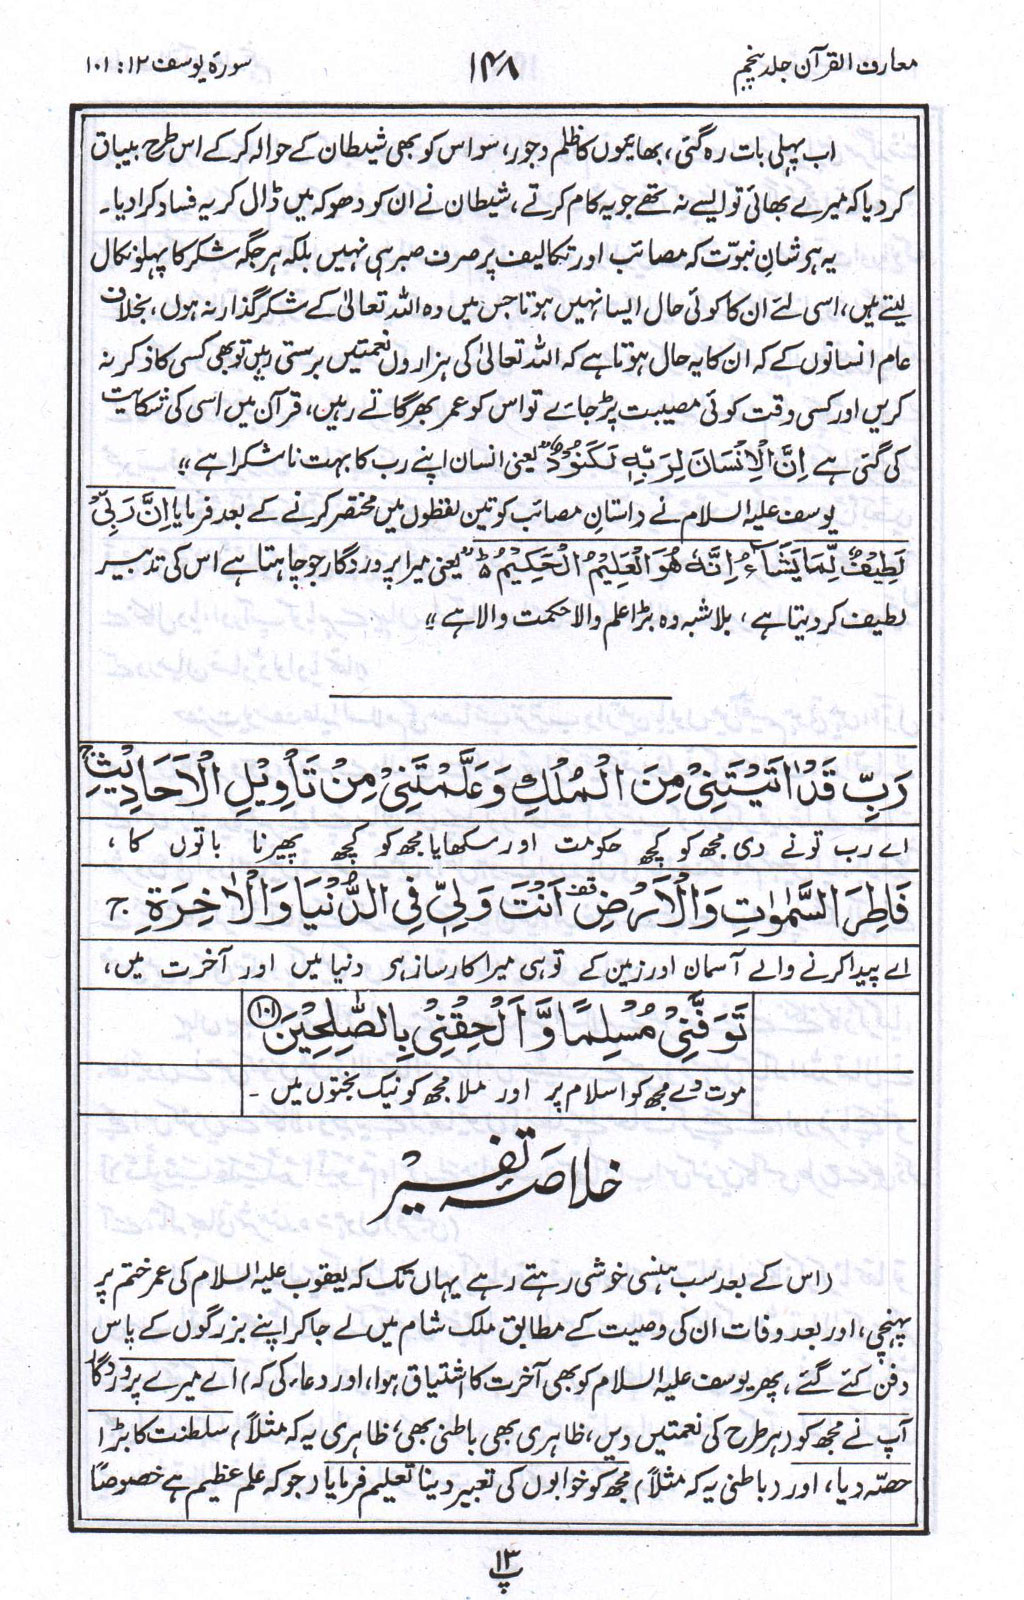 معارف القرآن جلد پنجم
۱۴۸
سورۂ یوسف ۱۲ : ۱۰۱
اب پہلی بات رہ گئی، بھائیوں کا ظلم و جور، سو اس کو بھی شیطان کے حوالہ کر کے اس طرح بیباق
کر دیا کہ میرے بھائی تو ایسے نہ تھے جو یہ کام کرتے، شیطان نے ان کو دھوکہ میں ڈال کر یہ فساد کرا دیا۔
یہ ہر شانِ نبوّت کہ مصائب اور تکالیف پر صرف صبر ہی نہیں بلکہ ہر جگہ شکر کا پہلو نکال
لیتے ہیں، اسی لئے ان کا کوئی حال ایسا نہیں ہوتا جس میں وہ اللہ تعالیٰ کے شکر گذار نہ ہوں، بخلاف
عام انسانوں کے کہ ان کا یہ حال ہوتا ہے کہ اللہ تعالیٰ کی ہزاروں نعمتیں برستی رہیں تو بھی کسی کا ذکر نہ
کریں اور کسی وقت کوئی مصیبت پڑ جائے تو اس کو عمر بھر گاتے رہیں، قرآن میں اسی کی شکایت
کی گئی ہے اِنَّ الْاِنْسَانَ لِرَبِّہٖ لَکَنُوْدٌ ”یعنی انسان اپنے رب کا بہت ناشکرا ہے“
یوسف علیہ السلام نے داستانِ مصائب کو تین لفظوں میں مختصر کرنے کے بعد فرمایا اِنَّ رَبِّیْ
لَطِیْفٌ لِّمَا یَشَآءُ اِنَّہٗ ھُوَ الْعَلِیْمُ الْحَکِیْمُ ”یعنی میرا پروردگار جو چاہتا ہے اس کی تدبیر
لطیف کر دیتا ہے، بلاشبہ وہ بڑا علم والا حکمت والا ہے“
رَبِّ قَدْ اٰتَیْتَنِیْ مِنَ الْمُلْکِ وَعَلَّمْتَنِیْ مِنْ تَاْوِیْلِ الْاَحَادِیْثِ ج
اے رب تونے دی مجھ کو کچھ حکومت اور سکھایا مجھ کو کچھ پھیرنا باتوں کا،
فَاطِرَ السَّمٰوٰتِ وَالْاَرْضِ قف اَنْتَ وَلِیّٖ فِی الدُّنْیَا وَالْاٰخِرَۃِ ج
اے پیدا کرنے والے آسمان اور زمین کے توہی میرا کارساز ہر دنیا میں اور آخرت میں،
تَوَفَّنِیْ مُسْلِمًا وَّ اَلْحِقْنِیْ بِالصّٰلِحِیْنَ ۱۰۱
موت دے مجھ کو اسلام پر اور ملا مجھ کو نیک بختوں میں۔
خلاصۂ تفسیر
(اس کے بعد سب ہنسی خوشی رہتے رہے یہاں تک کہ یعقوب علیہ السلام کی عمر ختم پر
پہنچی، اور بعد وفات ان کی وصیت کے مطابق ملک شام میں لے جا کر اپنے بزرگوں کے پاس
دفن کئے گئے، پھر یوسف علیہ السلام کو بھی آخرت کا اشتیاق ہوا، اور دعا کی کہ) اے میرے پروردگار
آپ نے مجھ کو (ہر طرح کی نعمتیں دیں، ظاہری بھی باطنی بھی، ظاہری یہ کہ مثلاً) سلطنت کا بڑا
حصّہ دیا، اور (باطنی یہ کہ مثلاً) مجھ کو خوابوں کی تعبیر دینا تعلیم فرمایا (جو کہ علم عظیم ہے خصوصًا
پ ۱۳